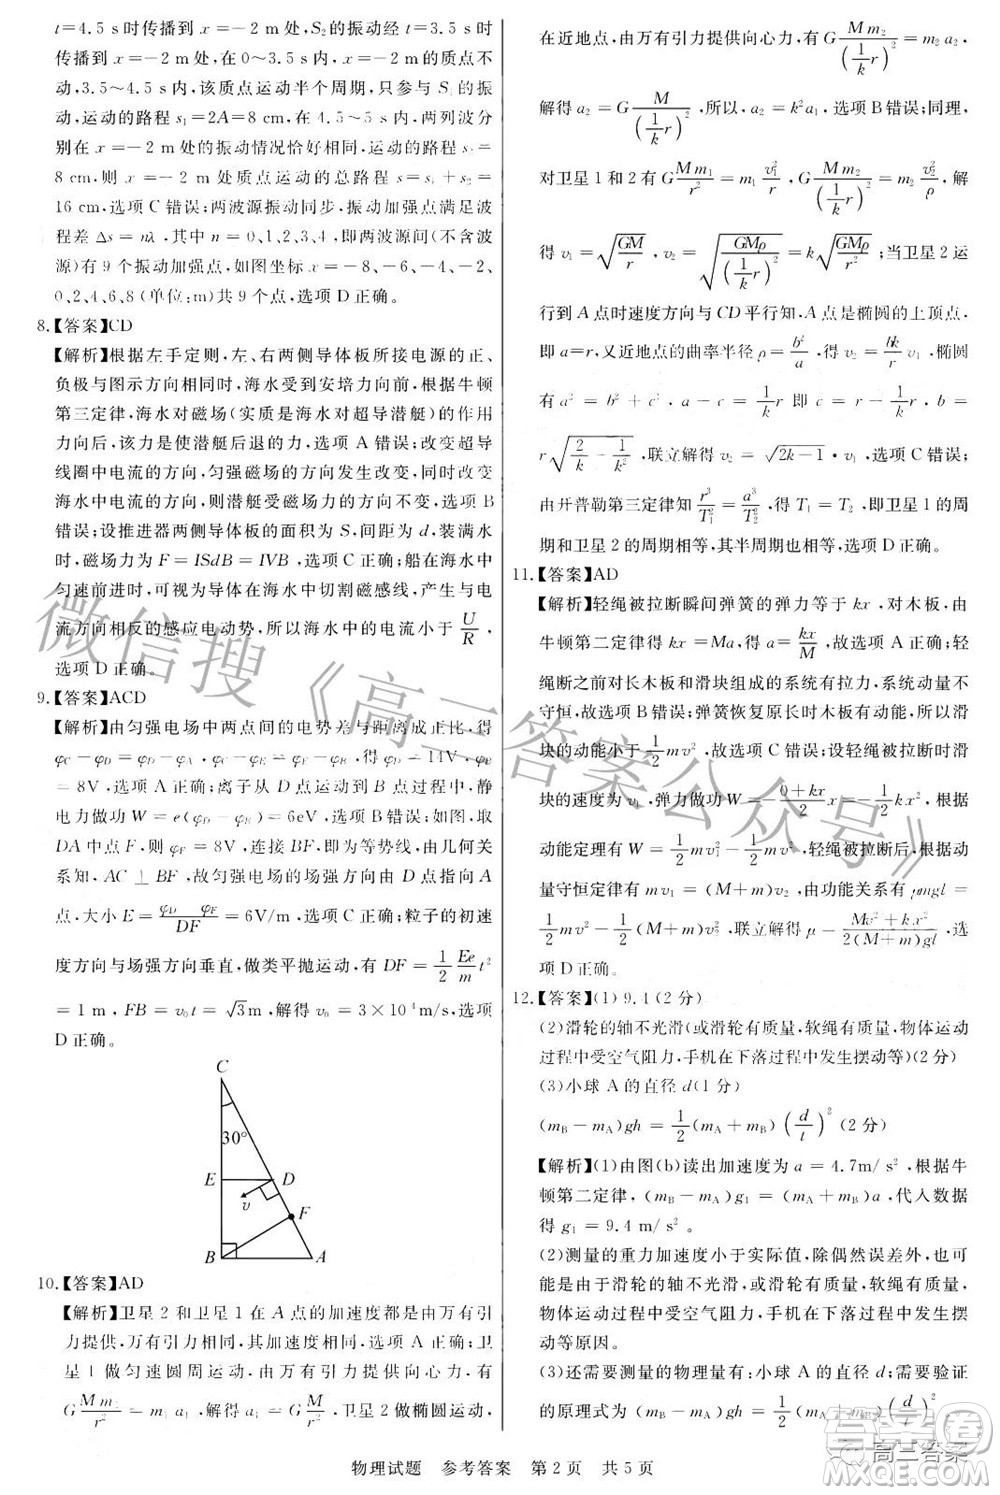 t=4.5 s时传播到 x=-2 m处,S₂的振动经 t=3.5 s
传播到 x=-2 m处,所以 x=-2 m的质点不
动,3.5~4.5 s,该质点运动半个周期,只参与 S₁的振
动,运动的路程 s₁=2A=8 cm,在 4.5~5 s,两列波分
别在 x=-2 m处的振动情况恰好相同,运动的路程 s₂=
8 cm,则 x=-2 m处质点运动的总路程 s=s₁+s₂=
16 cm,选项 C 错误;两波源振动同步,振动加强点满足波
程差 Δs=nλ,其中 n=0、1、2、3、4,即两波源间(不含波
源)有 9 个振动加强点,如图坐标 x=-8、-6、-4、-2、
0、2、4、6、8(单位:m)共 9 个点,选项 D 正确。
8.【答案】CD
【解析】根据左手定则,左、右两侧导体板所接电源的正、
负极与图示方向相同时,海水受到安培力向前,根据牛顿
第三定律,海水对磁场(实质是海水对超导潜艇)的作用
力向后,该力是使潜艇后退的力,选项 A 错误;改变超导
线圈中电流的方向,匀强磁场的方向发生改变,同时改变
海水中电流的方向,则潜艇受磁场力的方向不变,选项 B
错误;设推进器两侧导体板的面积为 S,间距为 d,装满水
时,磁场力 F=ISdB=IVB,选项 C 正确;船在海水中
匀速前进时,可视为导体在海水中切割磁感线,产生与电
流方向相反的感应电动势,所以海水中的电流小于 U/R,
选项 D 正确。
9.【答案】ACD
【解析】由匀强电场中两点间的电势差与距离成正比,得
φC-φD=φD-φA,φC=2φD-φA,得 φC=14V,φD
=8V,选项 A 正确;离子从 D 点运动到 B 点过程中,静
电力做功 W=e(φD-φB)=6eV,选项 B 错误;如图,取
DA中点 F,则 φF=8V,连接 BF,即为等势线,由几何关
系知,AC⊥BF,故匀强电场的场强方向由 D 点指向 A
点,大小 E=(φD-φF)/DF=6V/m,选项 C 正确;粒子的初速
度方向与场强方向垂直,做类平抛运动,有 DF=1/2 Ee/m t²
=1 m,FB=v₀t=√3m,解得 v₀=3×10⁴m/s,选项
D 正确。
C
30°
E
D
v
F
B
A
10.【答案】AD
【解析】卫星 2 和卫星 1 在 A 点的加速度都是由万有引
力提供,万有引力相同,其加速度相同,选项 A 正确;卫
星 1 做匀速圆周运动,由万有引力提供向心力,有
G Mm₁/r²=m₁a₁,解得 a₁=G M/r²,卫星 2 做椭圆运动,
在近地点,由万有引力提供向心力,有 G Mm₂/(1/k r)²=m₂a₂,
解得 a₂=G M/(1/k r)²,所以,a₂=k²a₁,选项 B 错误;同理,
对卫星 1 和 2 有 G Mm₁/r²=m₁ v₁²/r,G Mm₂/(1/k r)²=m₂ v₂²/ρ,解
得 v₁=√(GM/r),v₂=√(GMρ/(1/k r)²)=√(GMρ)/(1/k r);当卫星 2 运
行到 A 点时速度方向与 CD 平行知,A 点是椭圆的上顶点,
即 a=r,又近地点的曲率半径 ρ=b²/a,得 v₂=bk/r v₁,椭圆
有 a²=b²+c²,a-c=1/k r 即 c=r-1/k r,b=
r√(2/k-1/k²),联立解得 v₂=√(2k-1)·v₁,选项 C 错误;
由开普勒第三定律知 r³/T₁²=a³/T₂²,T₁=T₂,即卫星 1 的周
期和卫星 2 的周期相等,其半周期也相等,选项 D 正确。
11.【答案】AD
【解析】轻绳被拉断瞬间弹簧的弹力等于 kx,对木板,由
牛顿第二定律得 kx=Ma,得 a=kx/M,故选项 A 正确;轻
绳断之前对长木板和滑块组成的系统有拉力,动量不
守恒,故选项 B 错误;弹簧恢复原长时木板有动能,所以滑
块的动能小于 1/2 mv²,故选项 C 错误;设轻绳被拉断时滑
块的速度为 v₁,弹力做功 W=-(0+kx)/2 x=-1/2 kx²,根据
动能定理有 W=1/2 mv₁²-1/2 mv²,轻绳被拉断后,根据动
量守恒定律有 mv₁=(M+m)v₂,由功能关系有 μmgl=
1/2 mv²-1/2(M+m)v₂²,联立解得 μ=(Mv²+kx²)/(2(M+m)gl),选
项 D 正确。
12.【答案】(1)9.4(2 分)
(2)滑轮的轴不光滑(或滑轮有质量,软绳有质量,物体运动
过程中受空气阻力,手机在下落过程中发生摆动等)(2 分)
(3)小球 A 的直径 d(1 分)
(mB-mA)gh=1/2(mA+mB)(d/t)²(2 分)
【解析】(1)由图(b)读出加速度为 a=4.7m/s²,根据牛
顿第二定律,(mB-mA)g₁=(mA+mB)a,代入数据
得 g₁=9.4 m/s²。
(2)测量的重力加速度小于实际值,除偶然误差外,也可
能是由于滑轮的轴不光滑,或滑轮有质量,软绳有质量,
物体运动过程中受空气阻力,手机在下落过程中发生摆
动等原因。
(3)还需要测量的物理量有:小球 A 的直径 d;需要验证
的原理式为(mB-mA)gh=1/2(mA+mB)(d/t)²。
物理试题 参考答案 第 2 页 共 5 页
微信搜《高三答案公众号》
高三答案
答案圈
MXQE.COM